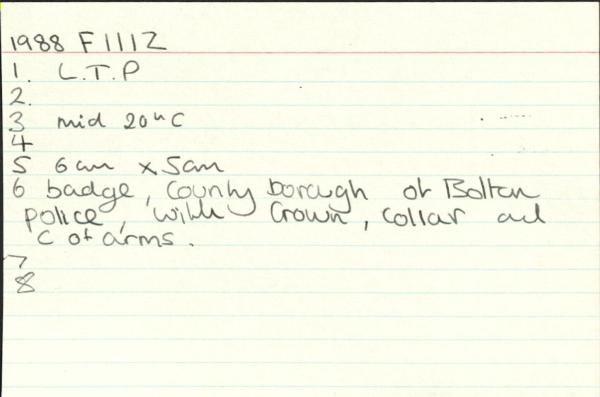 1988 F1112
1. L.T.P
2.
3 mid 20th C
4
5 6cm x 5cm
6 badge, County borough of Bolton
police, with Crown, collar and
C of arms.
7
8